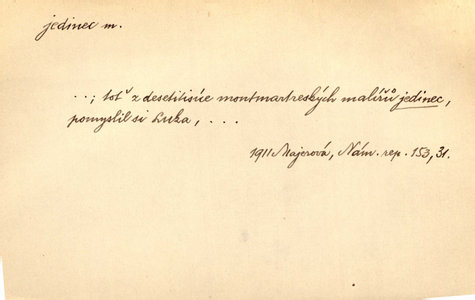 jedinec m.
. .; toť z desetitisíce montmartreských malířů jedinec,
pomyslil si Luka, . . .
1911 Majerová, Nám. rep. 153, 31.